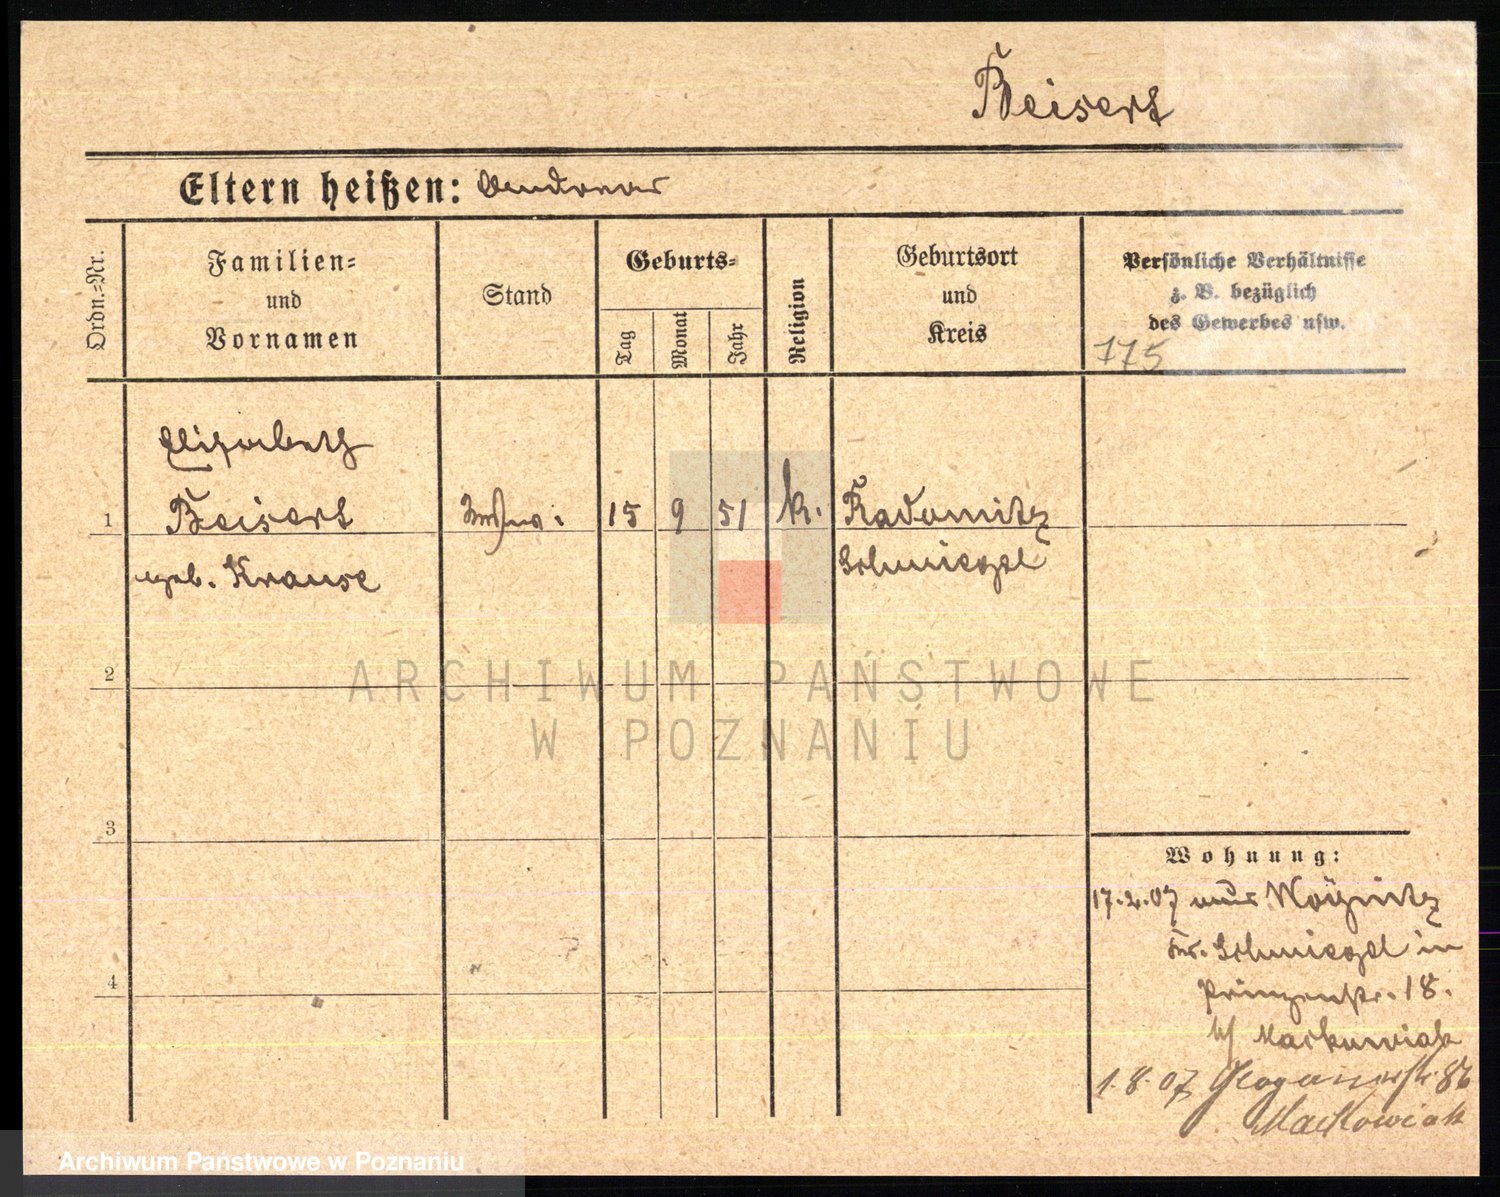 Beisert
Eltern heißen: Andreas
Ordn.-Nr.
Familien-
und
Vornamen
Stand
Geburts-
Tag
Monat
Jahr
Religion
Geburtsort
und
Kreis
Persönliche Verhältnisse
z. B. bezüglich
des Gewerbes usw.
115
Elisabeth
1 Beisert 15 9 51 k. Radomitz
geb. Krause Schmiegel
2
ARCHIWUM PAŃSTWOWE
W POZNANIU
3
Wohnung:
17.2.07 aus Woynitz
Kr. Schmiegel in
4
Prinzenstr. 18.
b/ Maćkowiak
1.8.07 Glogauerstr. 86
Maćkowiak
Archiwum Państwowe w Poznaniu